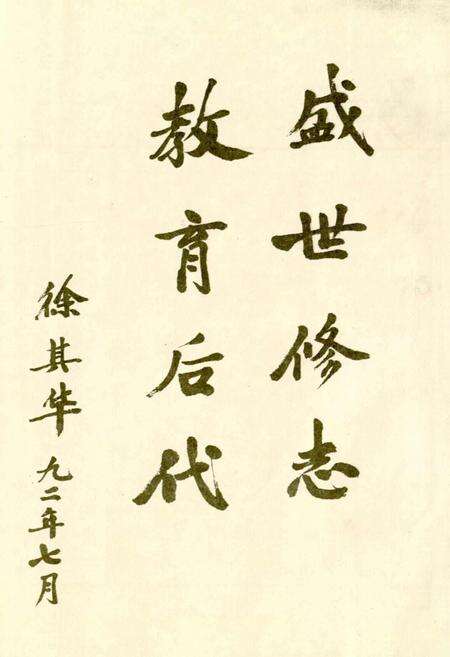 盛世修志
教育后代
徐其华 九二年七月